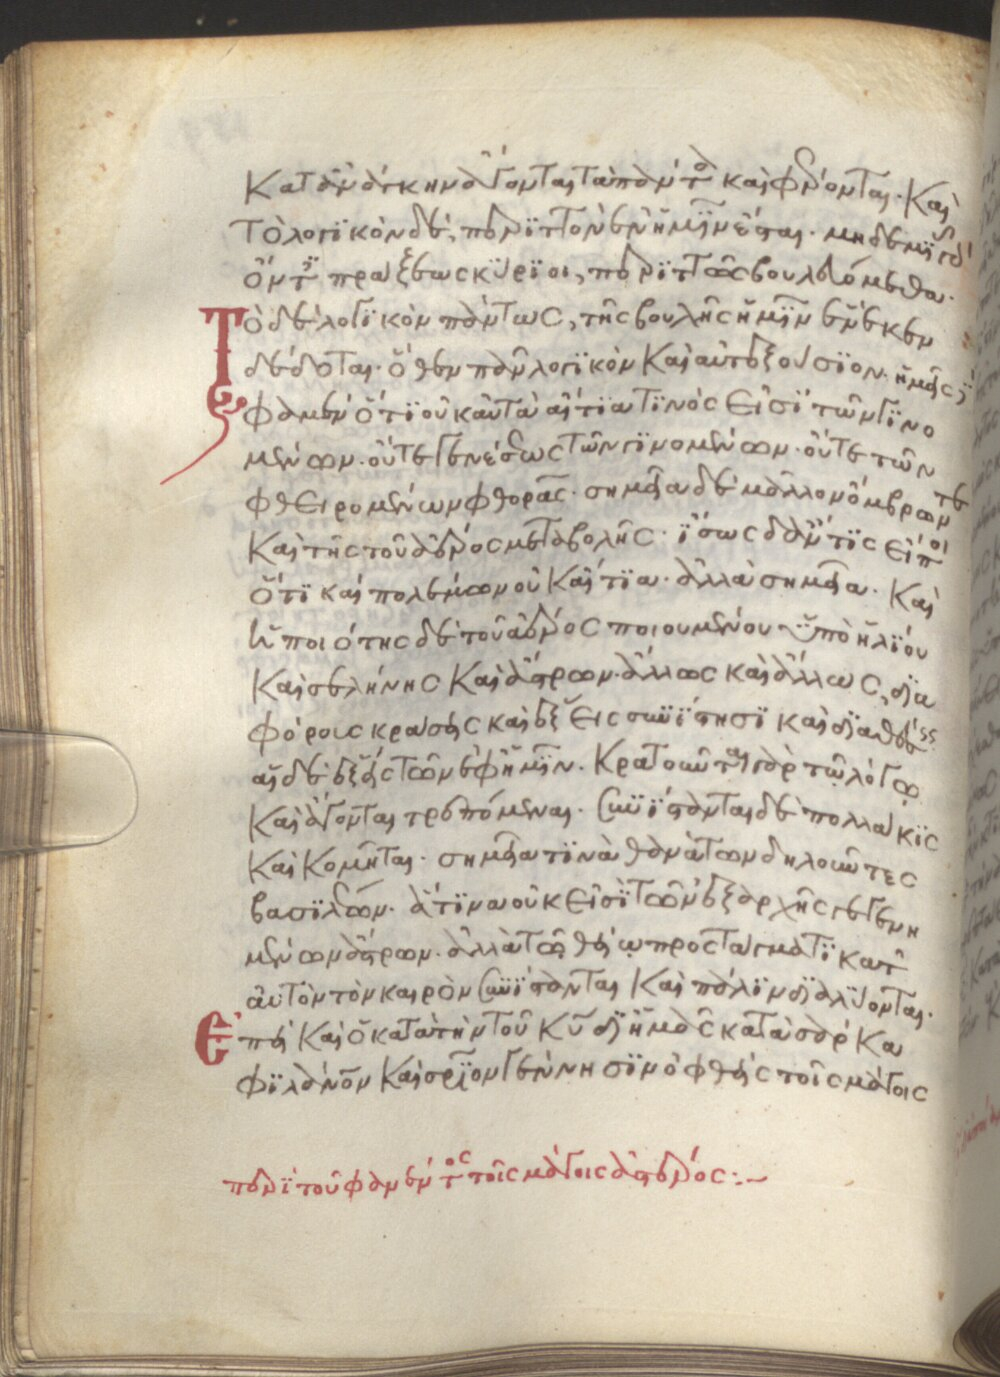 Κατ ἀνάγκην ἄγονται τὰ πάντα καὶ φέρονται. Καὶ
τὸ λογϊκὸν δὲ, περϊττὸν ἐν ἡμῖν ἔσται. μηδεμϊᾶς γὰρ
ὄντες πράξεως κύρϊοι, περϊττῶς βουλευόμεθα.
Τὸ δὲ λογϊκὸν πάντως, τῆς βουλῆς ἡμῖν ἕνεκεν
δέδοται. ὅθεν πᾶν λογϊκὸν Καὶ αὐτεξούσϊον. ἡμεῖς δέ
φαμεν ὅτϊ οὐκ αὐτὰ αἴτϊα τϊνός εἰσϊ τῶν γϊνο
μένων. οὔτε γενέσεως τῶν γϊνομένων. οὔτε τῶν
φθειρομένων φθορᾶς. σημεῖα δὲ μᾶλλον ὄμβρων τε
Καὶ τῆς τοῦ ἀέρος μεταβολῆς. ἴσως δ ἄν τϊς εἴποι
ὅτϊ καὶ πολέμων οὐκ αἴτϊα. ἀλλὰ σημεῖα. Καὶ
ἡ ποιότης δὲ τοῦ ἀέρος ποιουμένου ὑπὸ ἡλΐου
Καὶ σελήνης Καὶ ἄστρων. ἄλλως καὶ ἄλλως, δϊα
φόροις κράσεις καὶ ἕξεις συνΐστησϊ καὶ δϊαθέσεις
αἱ δὲ ἕξεις τῶν ἐφ ἡμῖν. Κρατοῦνται γὰρ τῷ λόγῳ
Καὶ ἄγονται τρεπόμεναι. Συνΐστανται δὲ πολλάκϊς
Καὶ Κομῆται. σημεῖα τϊνὰ θανάτων δηλοῦντες
βασϊλέων. ἅτϊνα οὐκ εἰσὶ τῶν ἐξ ἀρχῆς γεγενη
μένων ἄστρων. ἀλλὰ τῷ θείῳ προστάγματϊ κατ
αὐτὸν τὸν καιρὸν Συνΐστανται Καὶ πάλϊν δϊαλύονται.
Ἐπεὶ Καὶ ὁ κατὰ τὴν τοῦ Κῦ δϊ ἡμᾶς κατὰ σάρκα
φϊλάνον Καὶ σρϊον γέννησϊν ὀφθεὶς τοῖς μάγοις
περὶ τοῦ φανέντος τοῖς μάγοις ἀστέρος :~